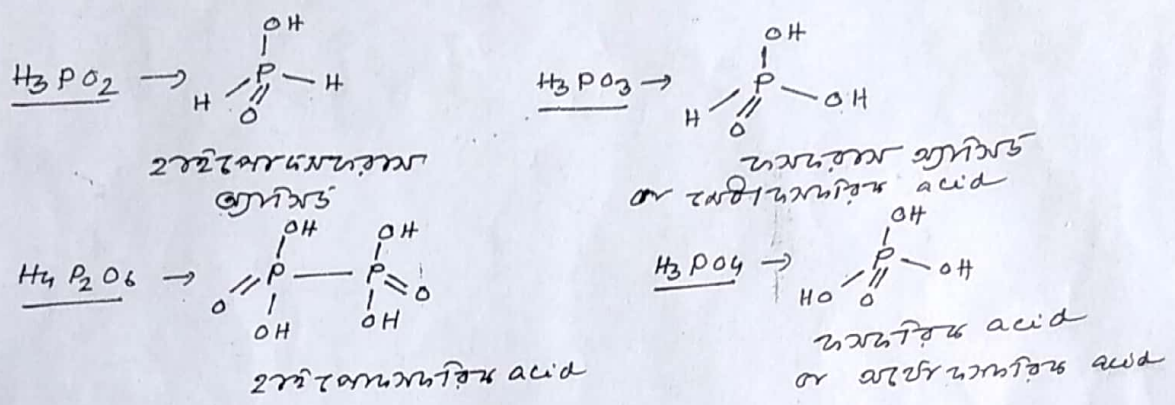 H₃PO₂ → OH P H H O
হাইপোফসফরাস
অ্যাসিড
H₃PO₃ → OH P OH H O
ফসফরাস অ্যাসিড
বা মেটাফসফরিক acid
H₄P₂O₆ → OH OH O P P O OH OH
হাইপোফসফরিক acid
H₃PO₄ → OH P OH HO O
ফসফরিক acid
বা অর্থোফসফরিক acid